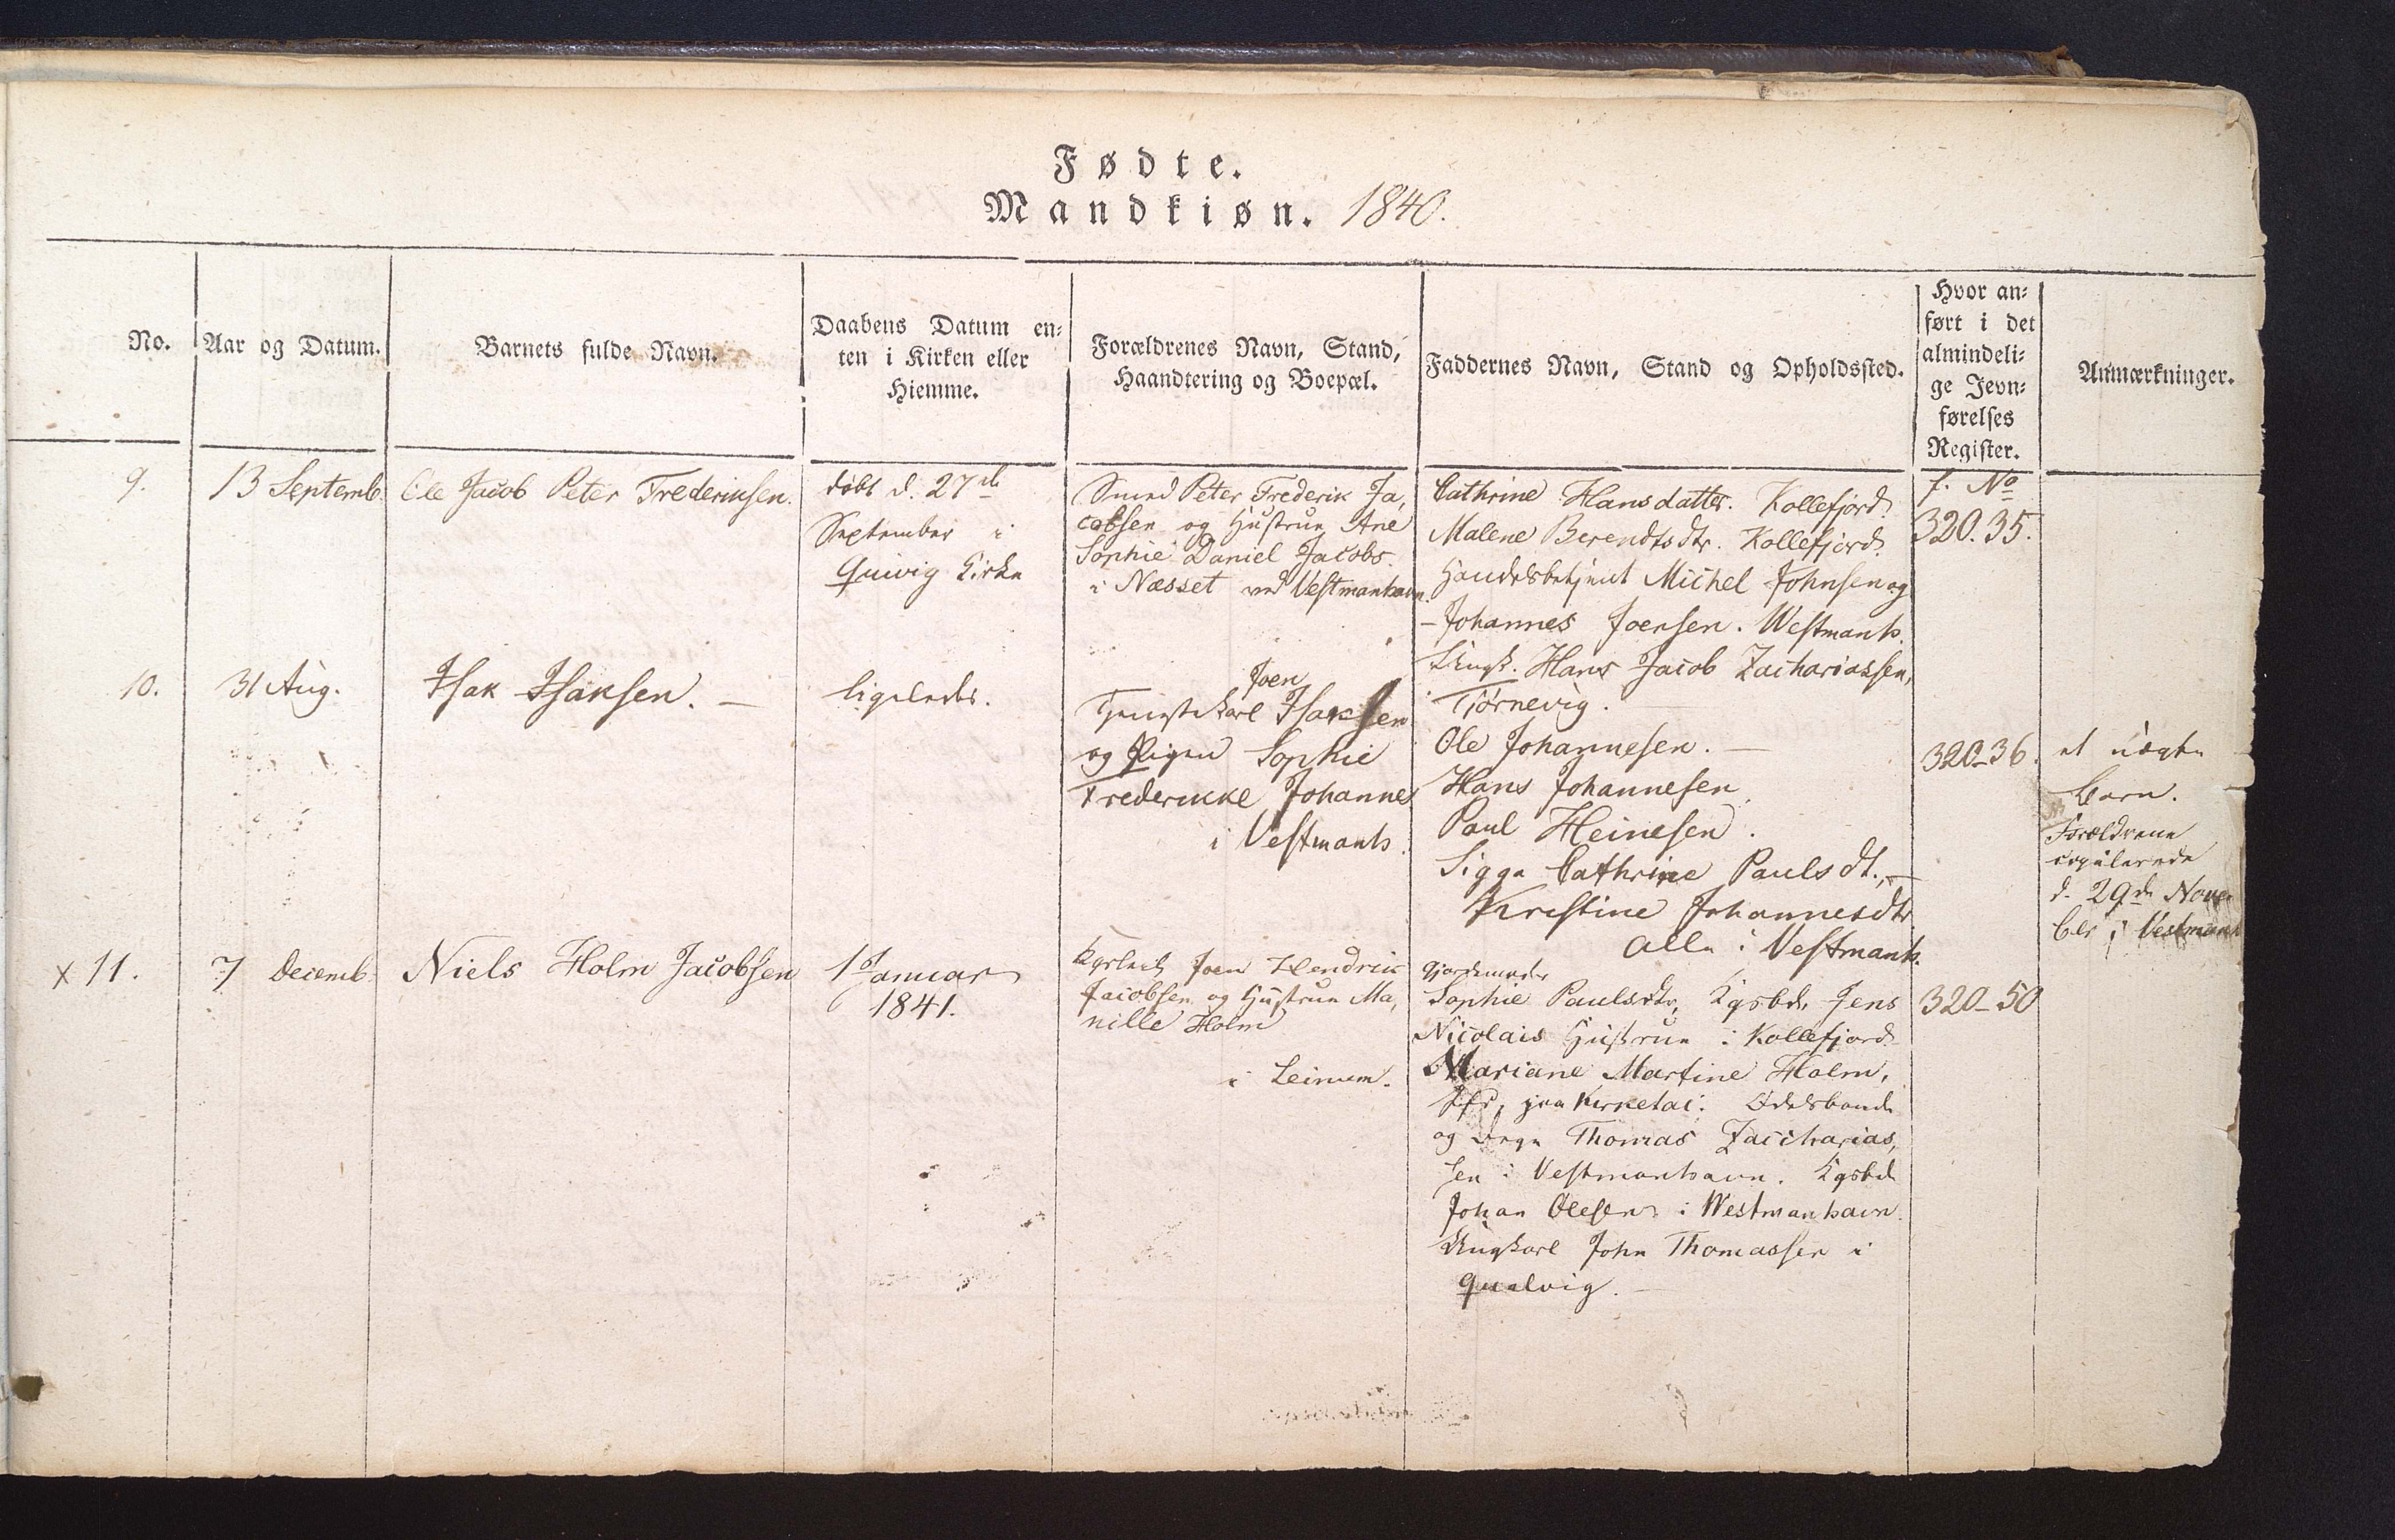 Fødte.
Mandkiøn. 1840.
No.
Aar og Datum.
Barnets fulde Navn.
Daabens Datum en-
ten i Kirken eller
Hiemme.
Forældrenes Navn, Stand,
Haandtering og Boepæl.
Faddernes Navn, Stand og Opholdssted.
Hvor an-
ført i det
almindeli-
ge Jevn-
førelses
Register.
Anmærkninger.
9.
13 Septemb.
Ole Jacob Peter Frederiksen.
døbt d. 27de
September i
Quivig Kirke
Smed Peter Frederik Ja,
cobsen og Hustrue Ane
Sophie Daniel Jacobs.
i Næsset ved Vestmanhavn.
Cathrine Hansdatter. Kollefjord.
Malene Berendtsdtr. Kollefjord.
Handelsbetjent Michel Johnsen og
Johannes Joensen. Westmanh.
Ungk. Hans Jacob Zachariassen,
Tjørnevig.
f. No
320. 35.
10.
31 Aug.
Isak Isaksen. —
ligeledes.
Joen
Tjenestekarl Isaksen
og Pigen Sophie
Frederikke Johannes
i Vestmanh.
Ole Johannesen. —
Hans Johannesen
Paul Heinesen.
Sigga Cathrine Paulsdt., —
Kristine Johannesdtr
alle i Vestmanh.
320-36.
et uægte
Barn.
Forældrene
copulerede
d. 29de Novem
ber i Vestmanh
x 11.
7 Decemb.
Niels Holm Jacobsen
1 Januar
1841.
Joen Hendrik
Jacobsen og Hustrue Ma,
nille Holm
i Leinum.
Gjordemoder
Sophie Paulsdtr, Kgsbd. Jens
Nicolais Hustrue i Kollefjord
Mariane Martine Holm,
paa Kirketai. Odelsbonde
og Degn Thomas Zacharias,
sen i Vestmanhavn. Kgsbd
Johan Olesen i Westmanhavn.
Ungkarl John Thomassen i
Qualvig. —
320-50